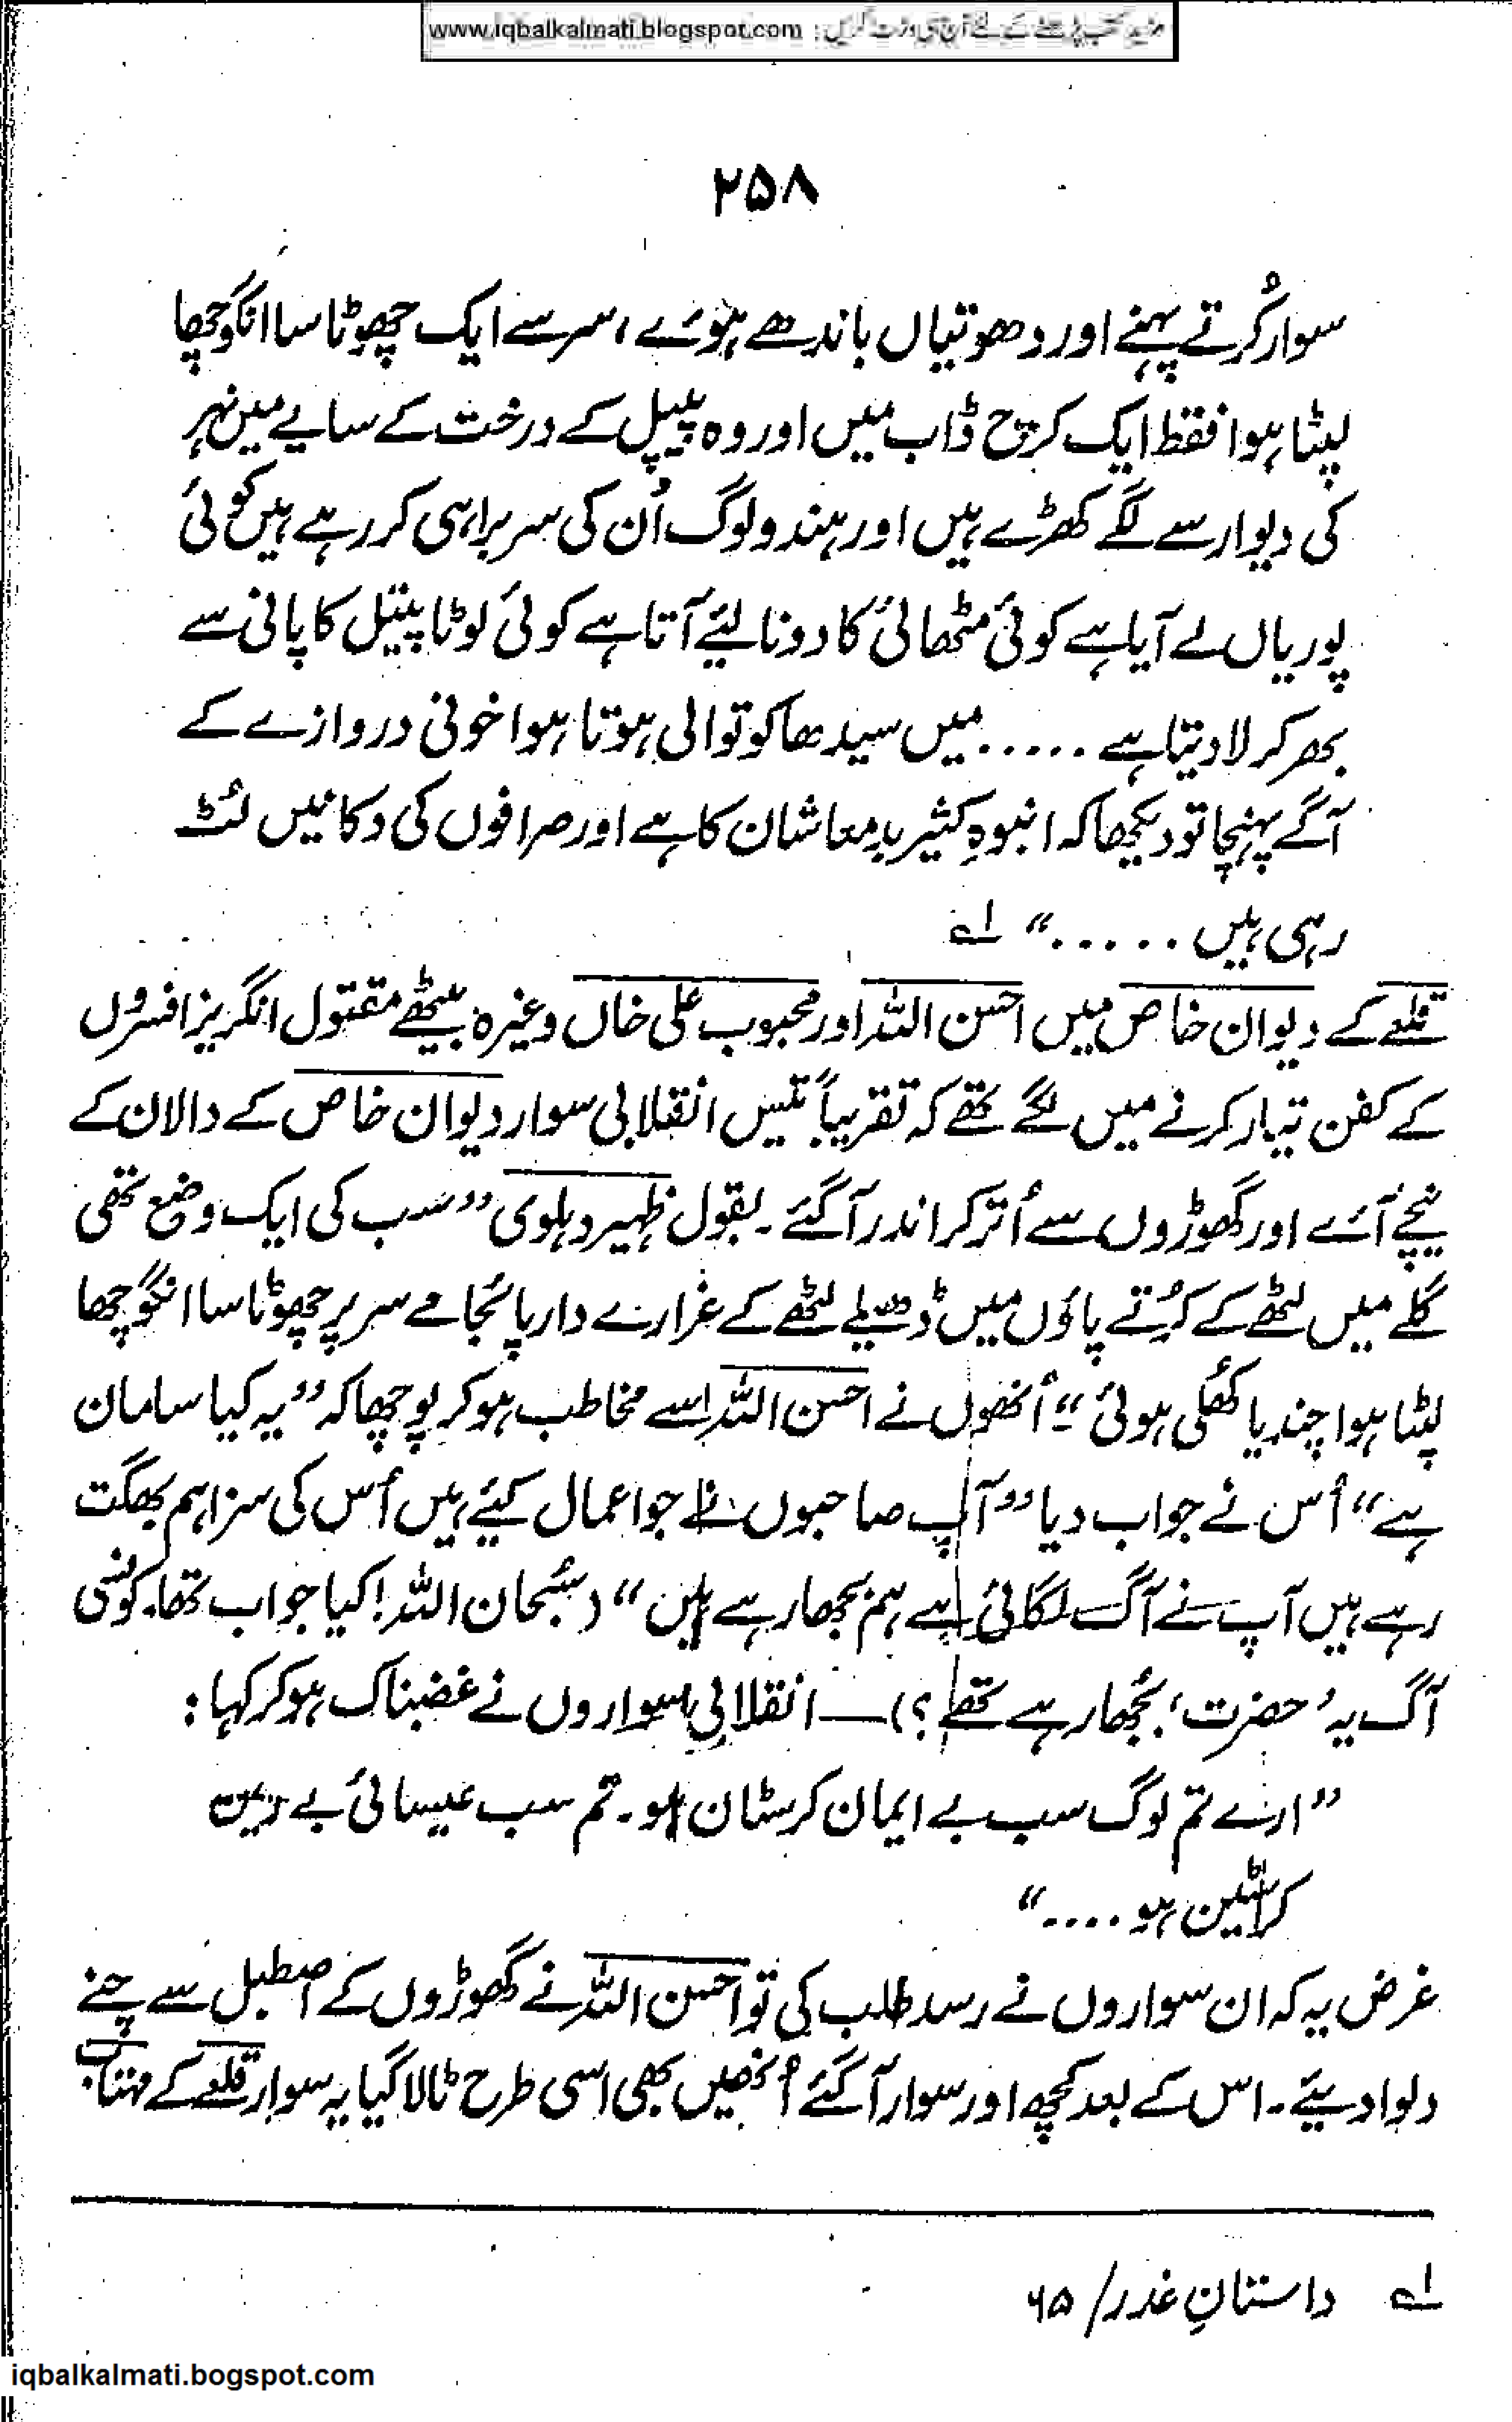 www.iqbalkalmati.blogspot.com : مزید کتب پڑھنے کے لئے آج ہی وزٹ کریں
۲۵۸
سوار کُرتے پہنے اور دھوتیاں باندھے ہوئے، سر سے ایک چھوٹا سا انگوچھا
لپٹا ہوا فقط ایک کرچ ڈاب میں اور وہ پیپل کے درخت کے سایے میں نہر
کی دیوار سے لگے کھڑے ہیں اور ہندو لوگ اُن کی سربراہی کر رہے ہیں کوئی
پوریاں لے آیا ہے کوئی مٹھائی کا دونا لیئے آتا ہے کوئی لوٹا پیتل کا پانی سے
بھر کر لا دیتا ہے ..... میں سیدھا کوتوالی ہوتا ہوا خونی دروازے کے
آگے پہنچا تو دیکھا کہ انبوہِ کثیر بدمعاشان کا ہے اور صرافوں کی دکانیں لُٹ
رہی ہیں ......“ ۱ے
قلعے کے دیوان خاص میں احسن اللہ اور محبوب علی خاں وغیرہ بیٹھے مقتول انگریز افسروں
کے کفن تیار کرنے میں لگے تھے کہ تقریباً تیس انقلابی سوار دیوان خاص کے دالان کے
نیچے آئے اور گھوڑوں سے اُتر کر اندر آگئے۔ بقول ظہیر دہلوی ”سب کی ایک وضع تھی
گلے میں لٹھے کے کُرتے پاؤں میں ڈھیلے لٹھے کے غرارے دار پائجامے سر پر چھوٹا سا انگوچھا
لپٹا ہوا چندیا کھُلی ہوئی“۔ اُنھوں نے احسن اللہ سے مخاطب ہو کر پوچھا کہ ”یہ کیا سامان
ہے“ اُس نے جواب دیا ”آپ صاحبوں نے جو اعمال کیئے ہیں اُس کی سزا ہم بھگت
رہے ہیں آپ نے آگ لگائی ہے ہم بجھا رہے ہیں“ (سُبحان اللہ! کیا جواب تھا۔ کونسی
آگ یہ ’حضرت‘ بُجھا رہے تھے؟) — انقلابی سواروں نے غضبناک ہو کر کہا:
”ارے تم لوگ سب بے ایمان کرسٹان ہو۔ تم سب عیسائی بے دین
کرسٹین ہو ....“
غرض یہ کہ ان سواروں نے رسد طلب کی تو احسن اللہ نے گھوڑوں کے اصطبل سے چنے
دلوا دیئے۔ اس کے بعد کچھ اور سوار آگئے اُنھیں بھی اسی طرح ٹالا گیا یہ سوار قلعے کے مہتاب
۱ے داستانِ غدر/ ۶۵
iqbalkalmati.bogspot.com